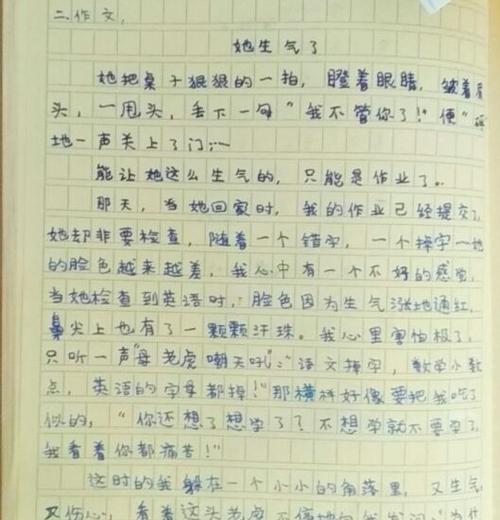 二.作文.
她生气了
她把桌子狠狠的一拍，瞪着眼睛，皱着眉
头，一甩头，丢下一句“我不管你了！”便“砰
地一声关上了门……
能让她这么生气的，只能是作业了。
那天，当她回家时，我的作业已经提交了，
她却非要检查，随着一个错字，一个掉字……她
的脸色越来越差，我心中有一个不好的感觉，
当她检查到英语时，脸色因为生气涨地通红，
鼻尖上也有了一颗颗汗珠。我心里害怕极了，
只听一声“母老虎嘲天吼”：“语文掉字，数学小数
点，英语的字母都掉！”那横样好像要把我吃了
似的，“你还想了想学了？不想学就不要学了，
我看着你都痛苦！”
这时的我躲在一个小小的角落里，又生气
又伤心，看着这头老虎不停地向我发问：“为什